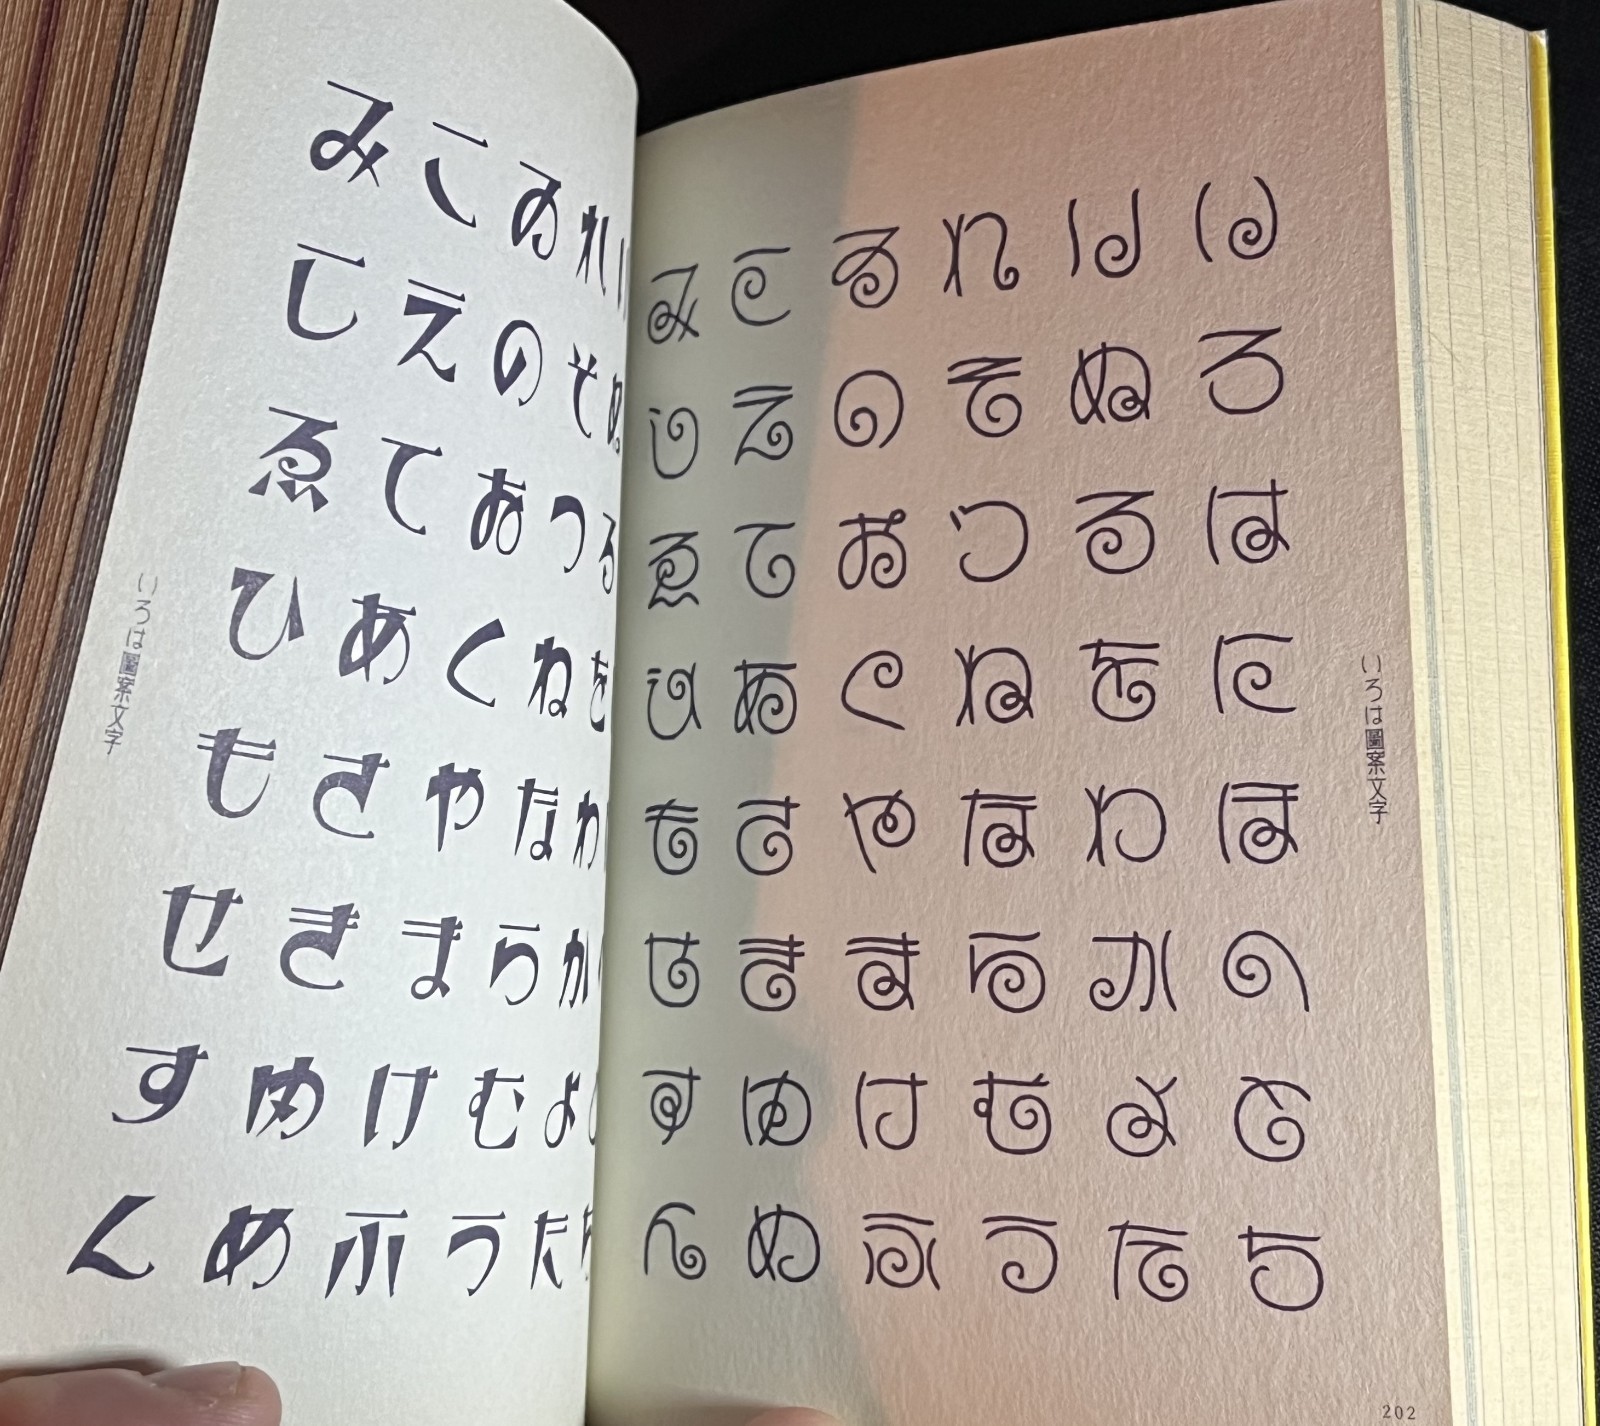 いろは圖案文字
いろはにほへとち
りぬるをわかよた
れそつねならむう
ゐのおくやまけふ
こえてあさきゆめ
みしゑひもせすん
202
りぬるをわかよた
れそつねならむう
ゐのおくやまけふ
こえてあさきゆめ
みしゑひもせすん
いろは圖案文字